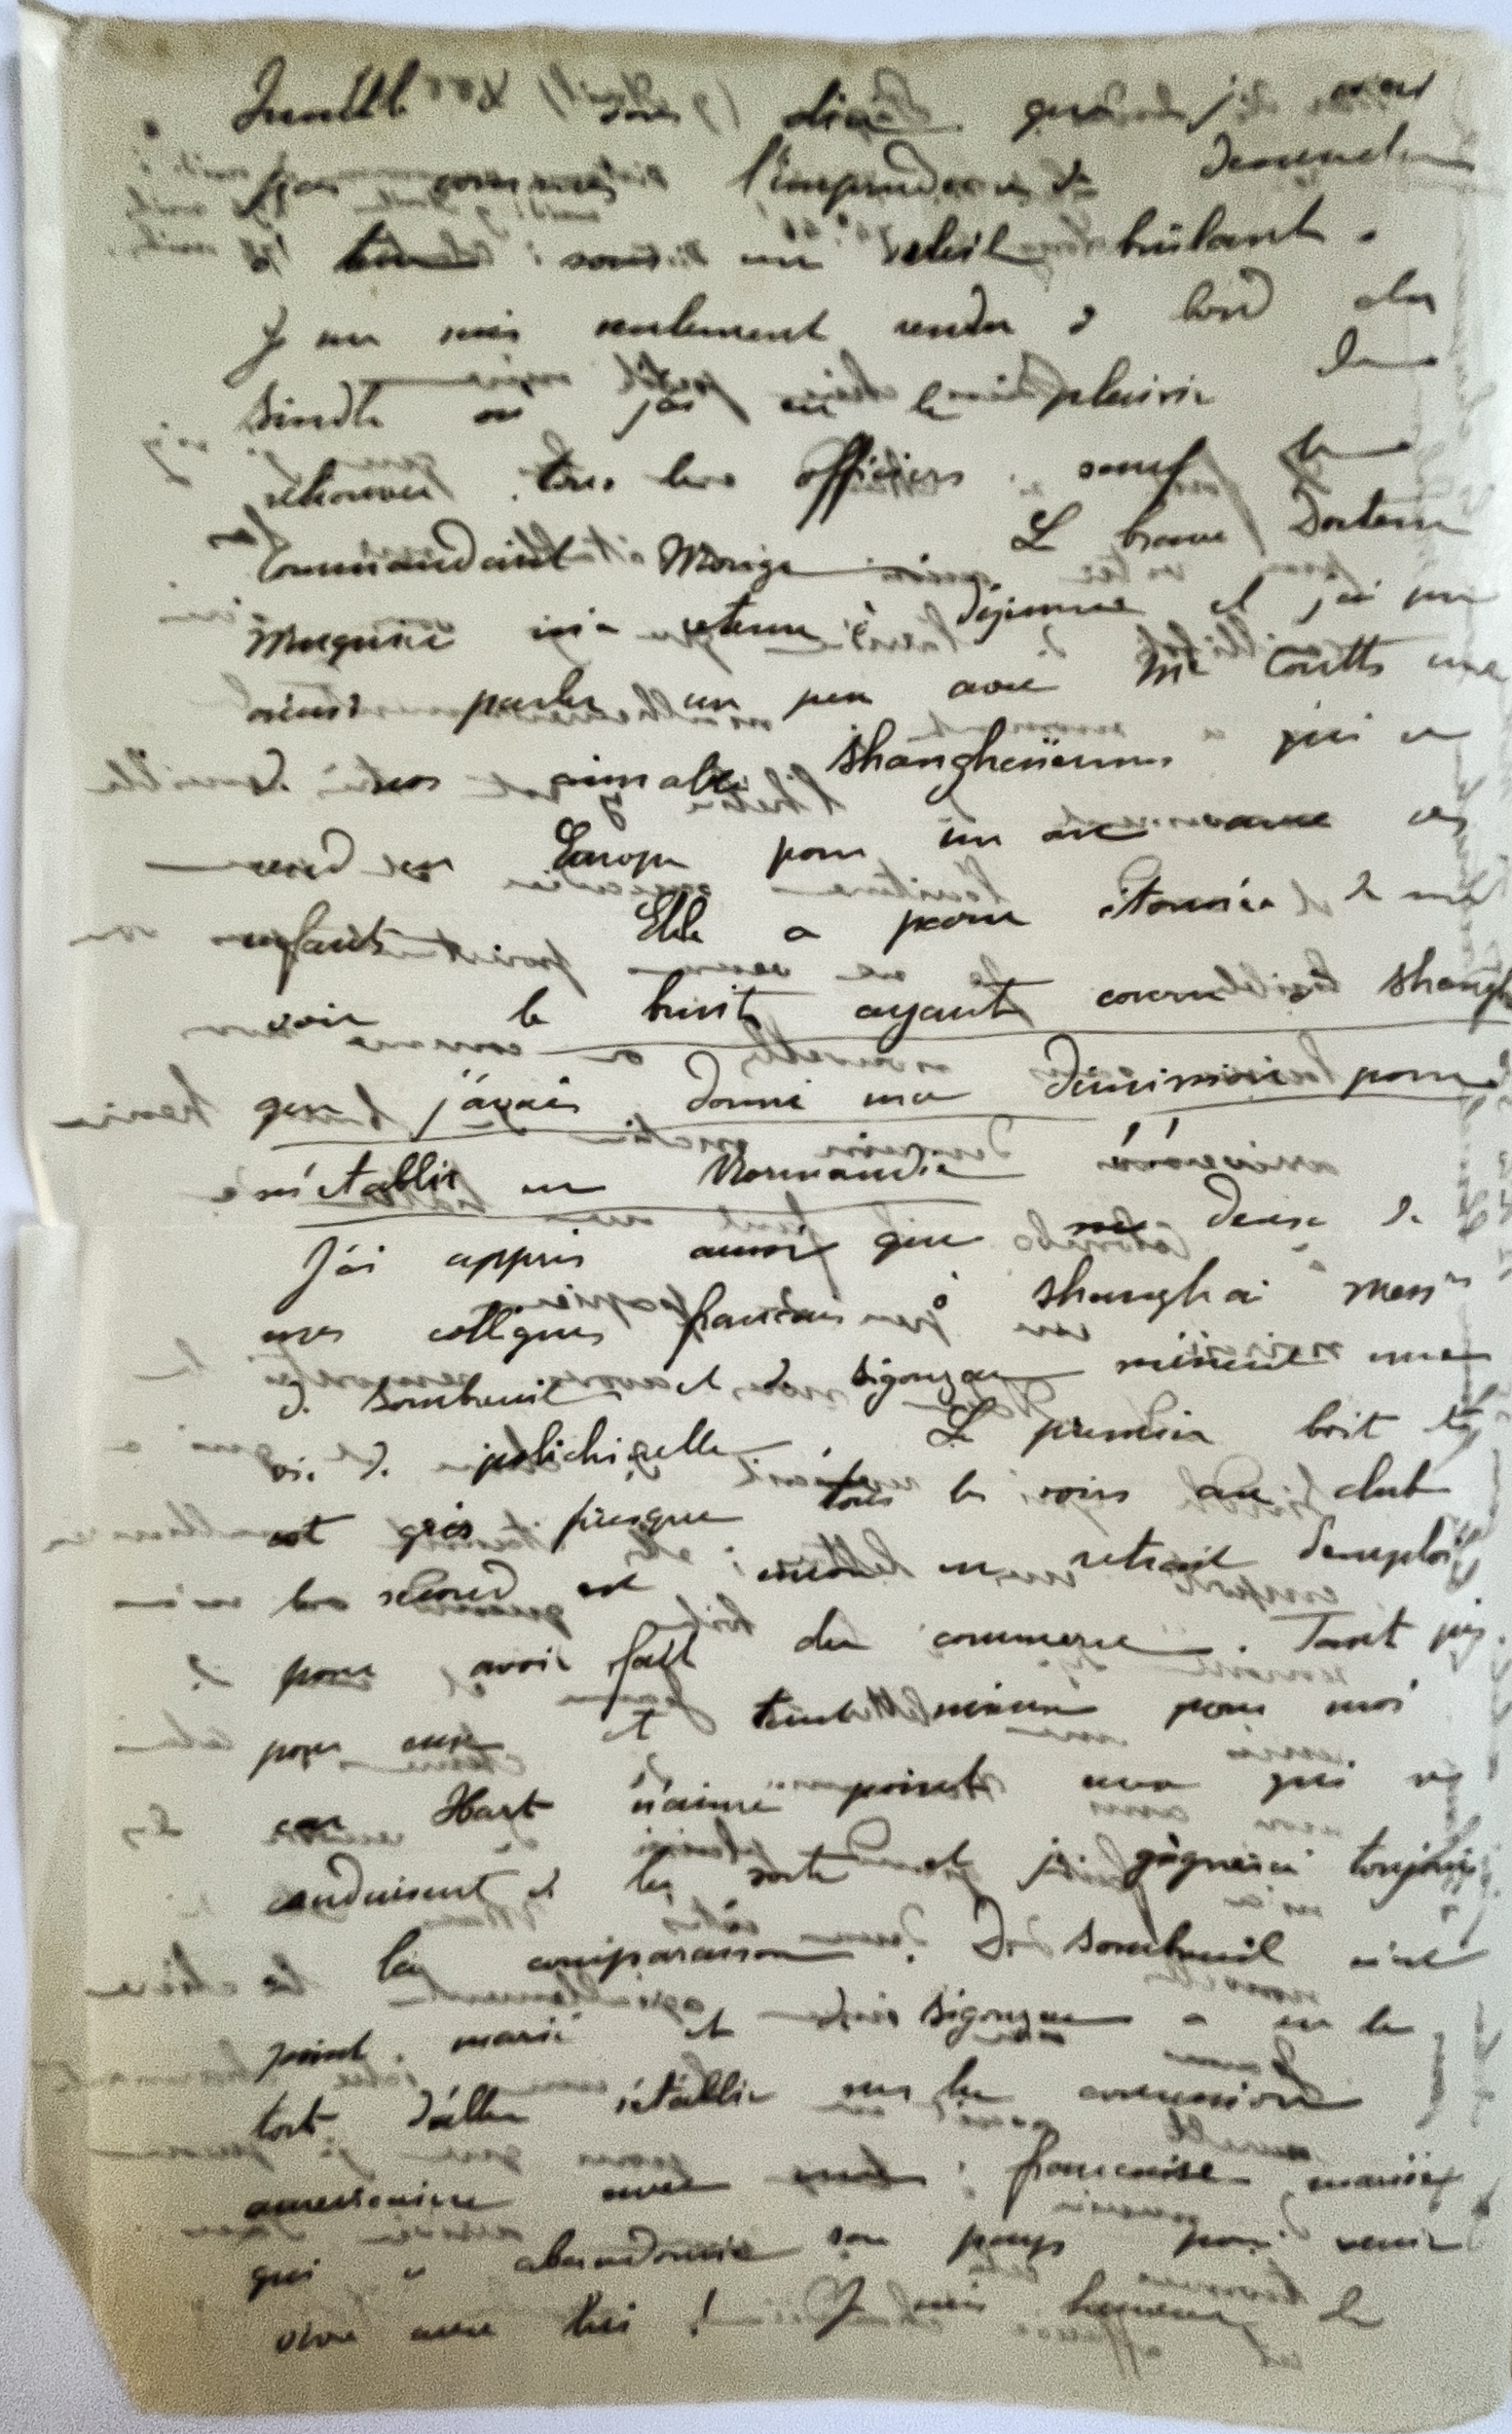 Inutile vous dire que je n'ai
pas commis l'imprudence de descendre
à terre sous un soleil brûlant.
Je me suis seulement rendu à bord du
Sindh où j'ai eu le plaisir de
retrouver tous les officiers sauf le
Commandant Le brave Docteur
m'a retenu à déjeuner et j'ai pu
ainsi parler un peu avec Me Coutts une
de nos aimables Shanghaïennes qui se
rend en Europe pour un an avec ses
enfants Elle a parue étonnée de me
voir le bruit ayant couru à Shangh
que j'avais donné ma démission pour
m'établir en Normandie !!
J'ai appris aussi que deux de
mes collègues français à Shanghai Mess rs
de Sombreuil et de Sigonzac mènent une
vie de polichinelle. Le premier boit
est gris presque tous les soirs au club
le second est mis en retrait d'emploi
pour avoir fait du commerce. Tant pis
pour eux et tant mieux pour moi
car Hart n'aime point ceux qui se
conduisent de la sorte et je gagnerai toujours
à la comparaison. De Sombreuil n'est
point marié et de Sigonzac a eu le
tort d'aller s'établir sur la concession
américaine avec une française mariée
qui a abandonné son pays pour venir
vivre avec lui ! Je suis heureux de